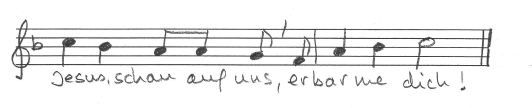 Jesus, schau auf uns, erbarme dich!